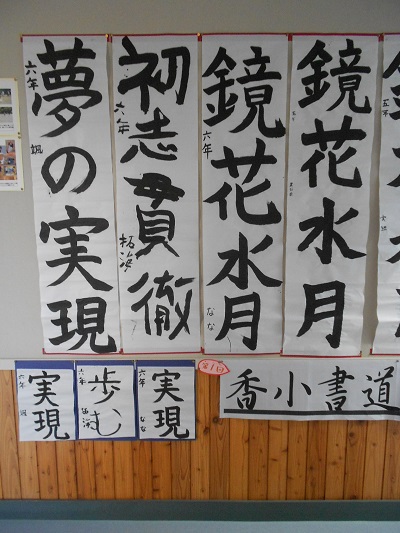 鏡花水月
鏡花水月
六年
なな
初志貫徹
六年
拓海
夢の実現
六年
颯
実現
六年
なな
歩む
六年
拓海
実現
六年
颯
第1回
香小書道